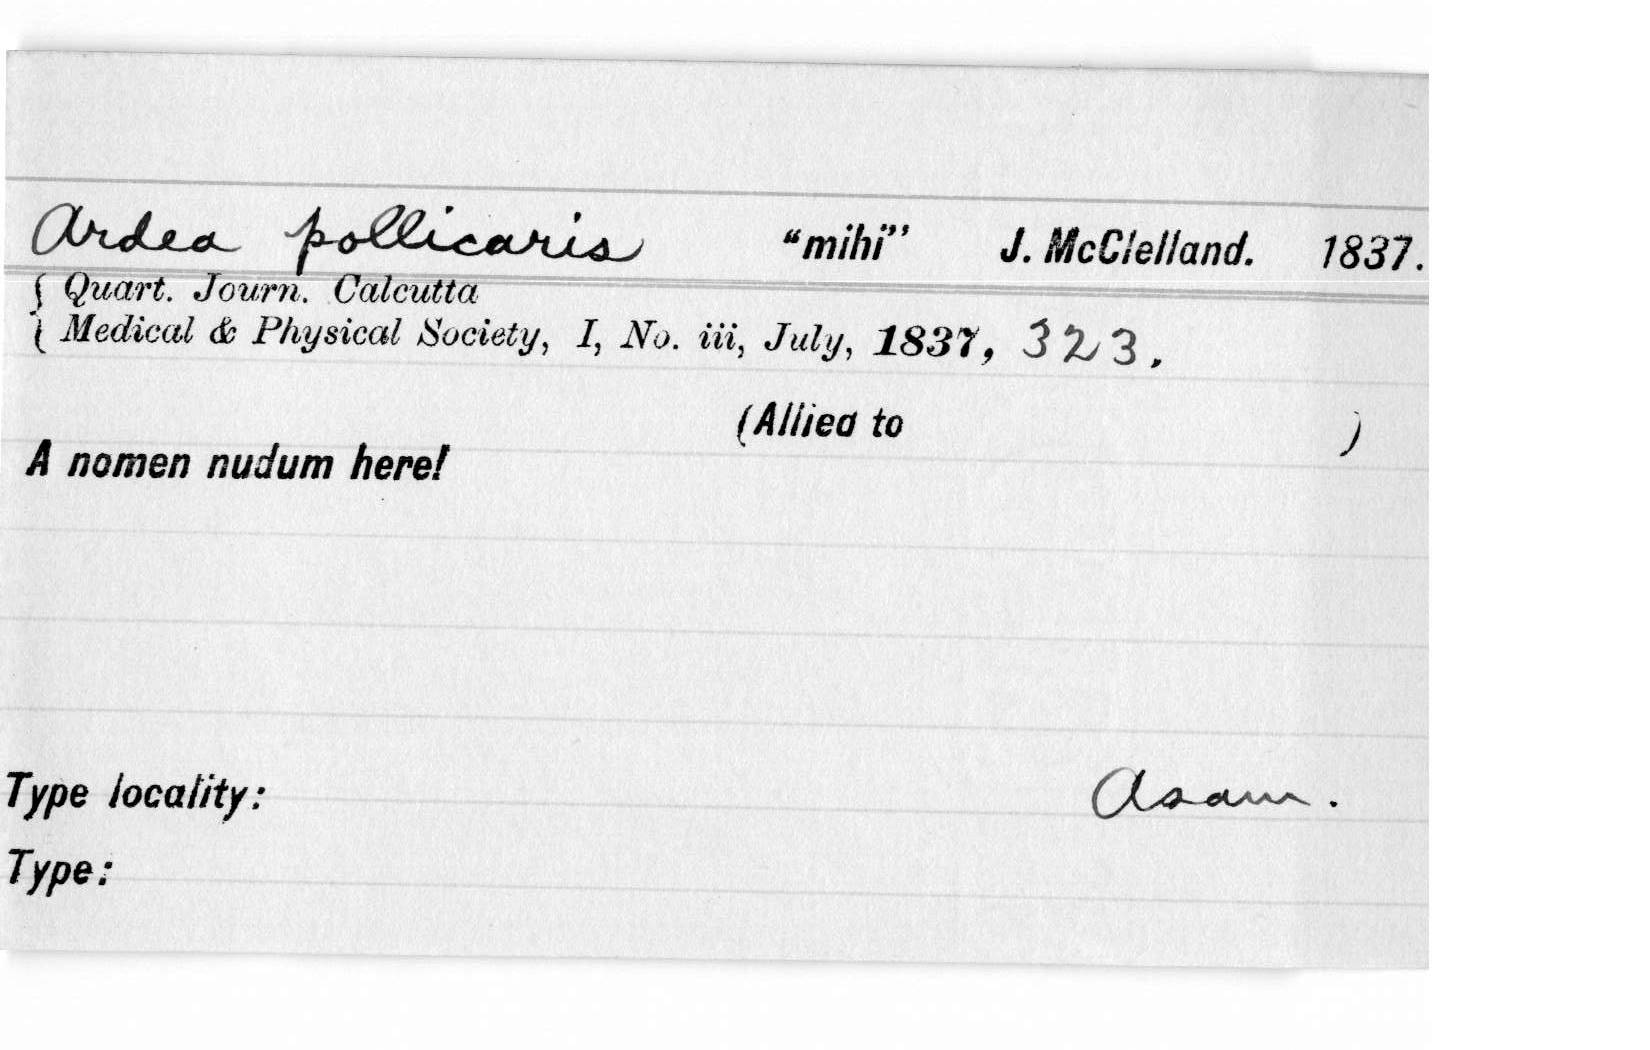 Ardea pollicaris "mihi" J. McClelland. 1837.
{ Quart. Journ. Calcutta
{ Medical & Physical Society, I, No. iii, July, 1837, 323.
(Allied to )
A nomen nudum here!
Type locality: Asam.
Type: